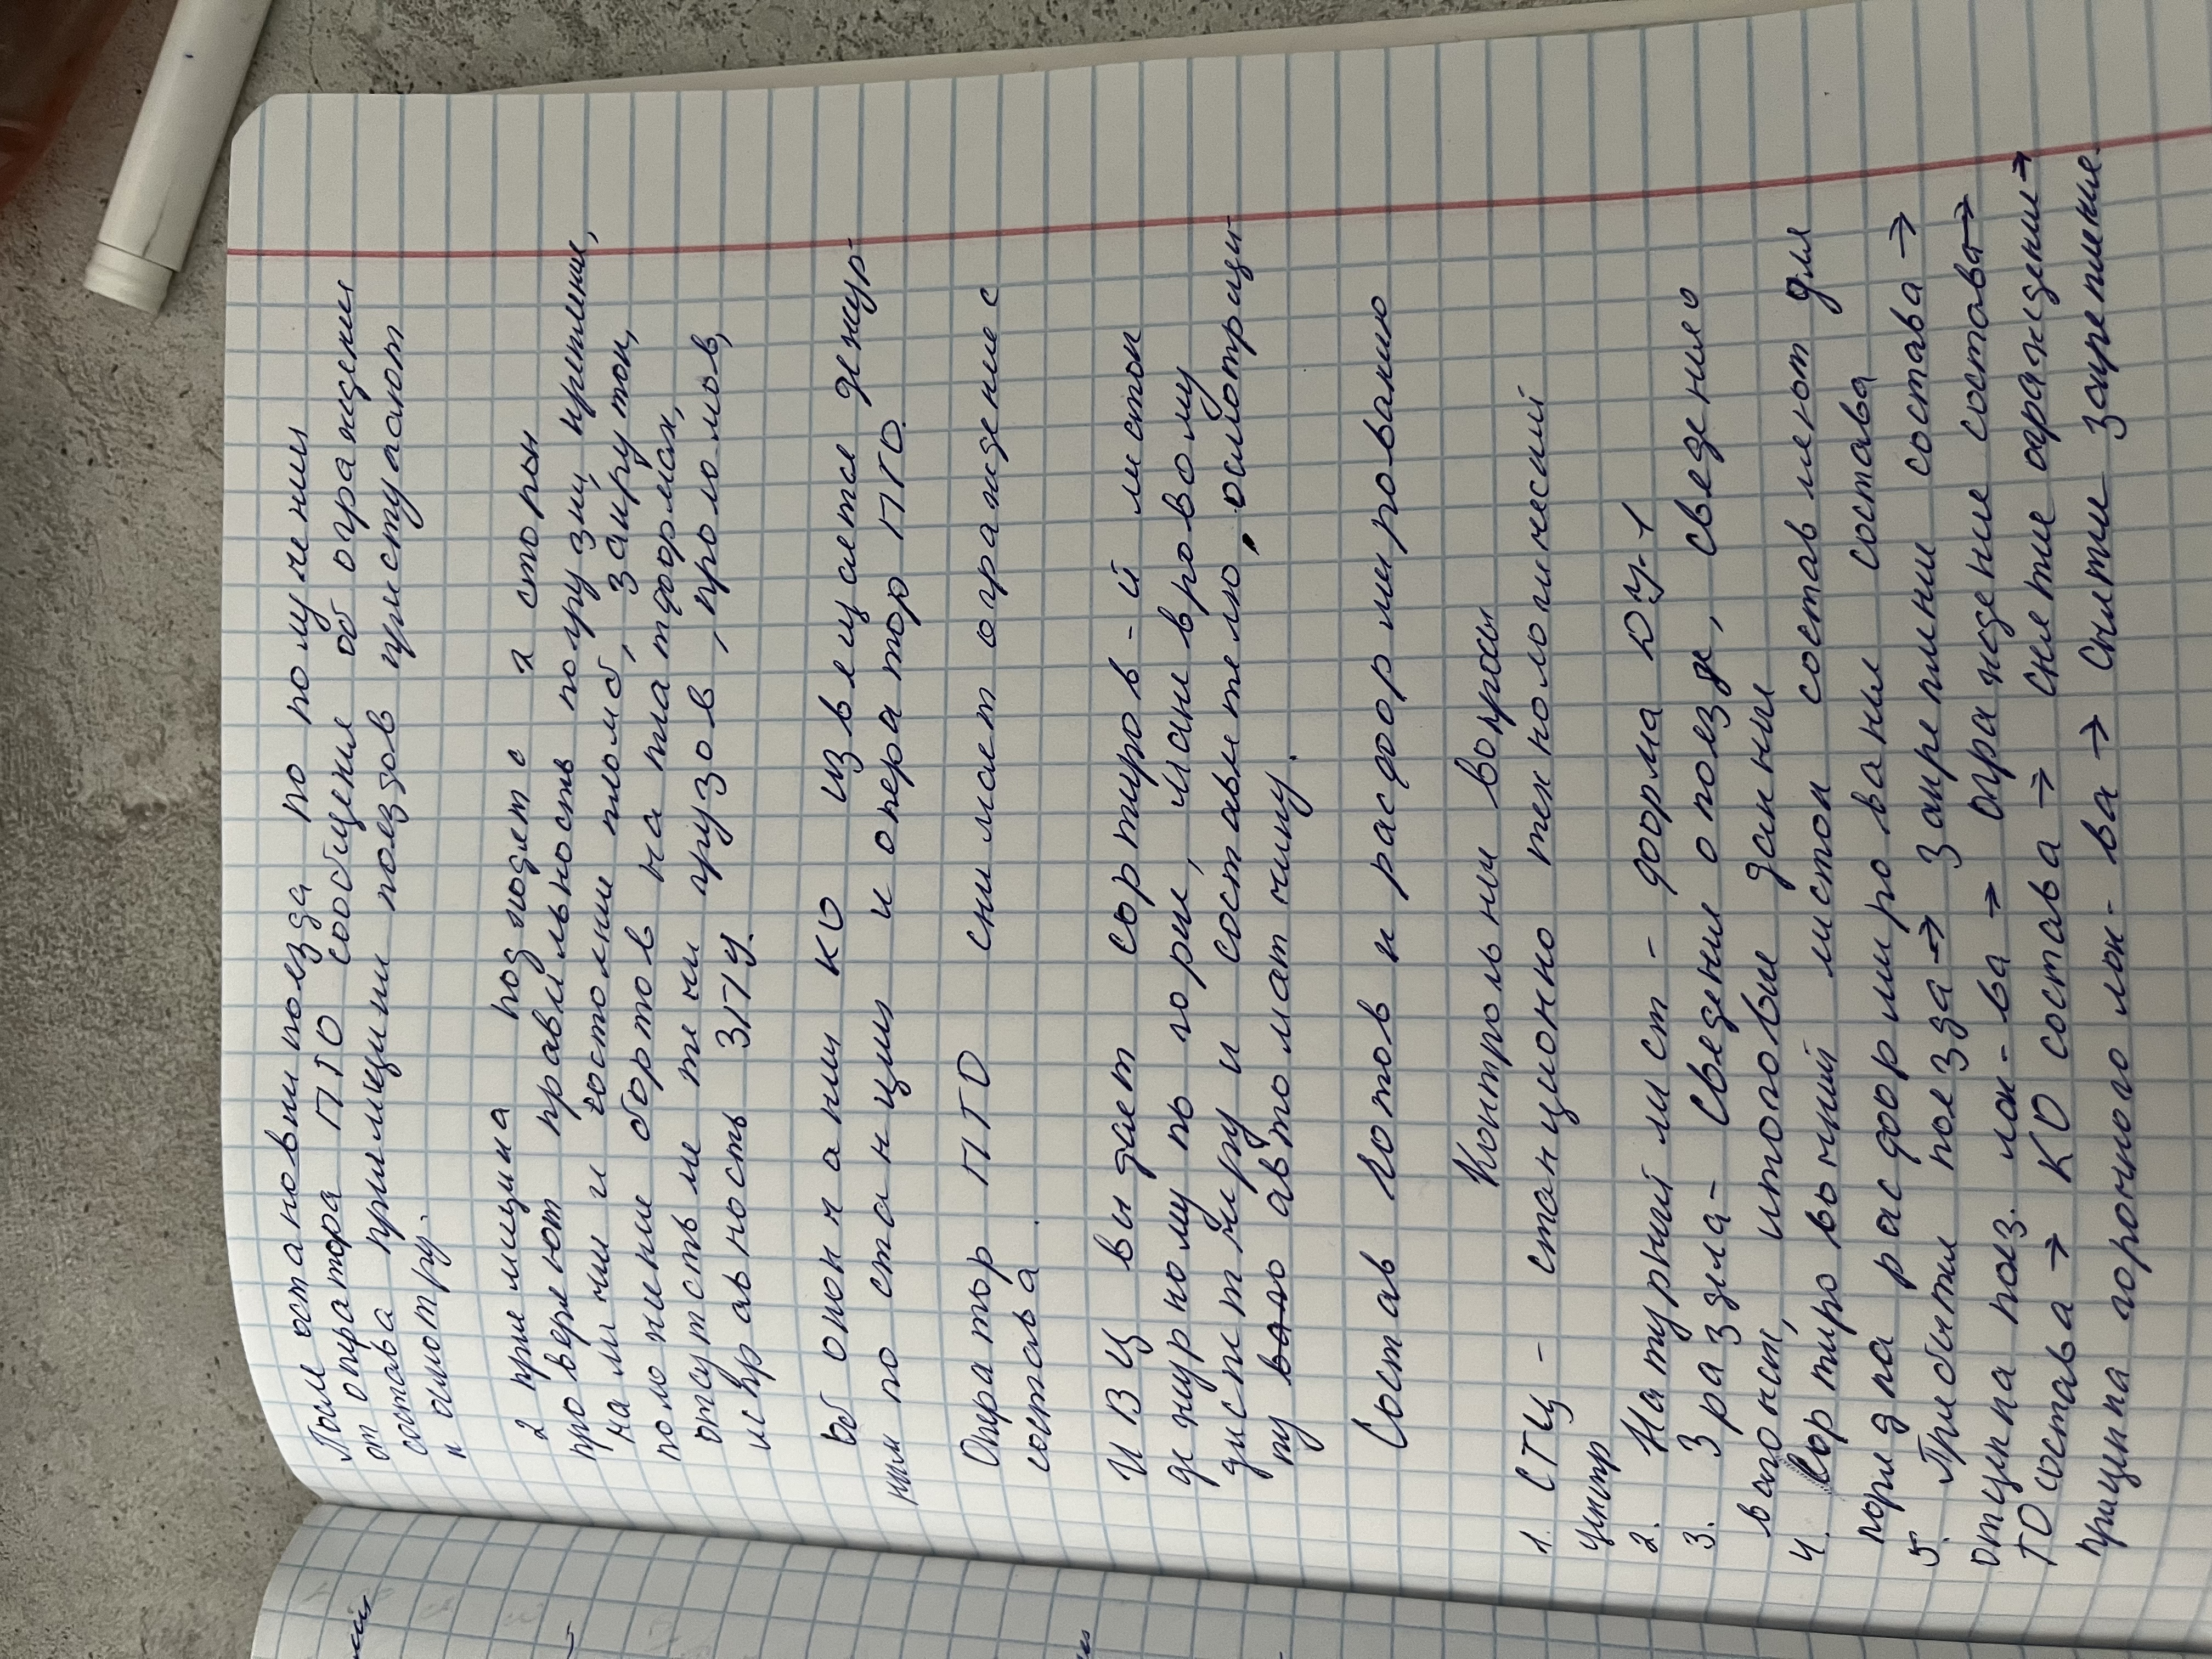 После остановки поезда по получении
от оператора ПТО сообщения об ограждении
состава приемщики поездов приступают
к осмотру.
2 приемщика подходят с 2 сторон
проверяют правильность погрузки, крепление,
наличия и состояние пломб, закруток,
положение бортов на платформах,
отсутствие течи грузов, проломов,
исправность ЗПУ.
Об окончании КО извещается дежур-
ным по станции и оператор ПТО.
Оператор ПТО снимает ограждение с
состава.
ИВЦ выдает сортиров-й листок
дежурному по горке, маневровому
диспетчеру и составителю, осмотрщи-
ку вало автоматчику.
Состав готов к расформированию
Контрольные вопросы
1. СТЦ - станционно технологический
центр
2. Натурный лист - форма ДУ-1
3. 3 раздела - Сведения о поезде, сведения о
вагонах, итоговые данные
4. Сортировочный листок составляют для
порядка расформирования состава
5. Прибытие поезда → Закрепление состава →
отцепка поез. лок-ва → ограждение состава →
ТО состава → КО состава → снятие ограждения →
прицепка горочного лок-ва → снятие закрепления.